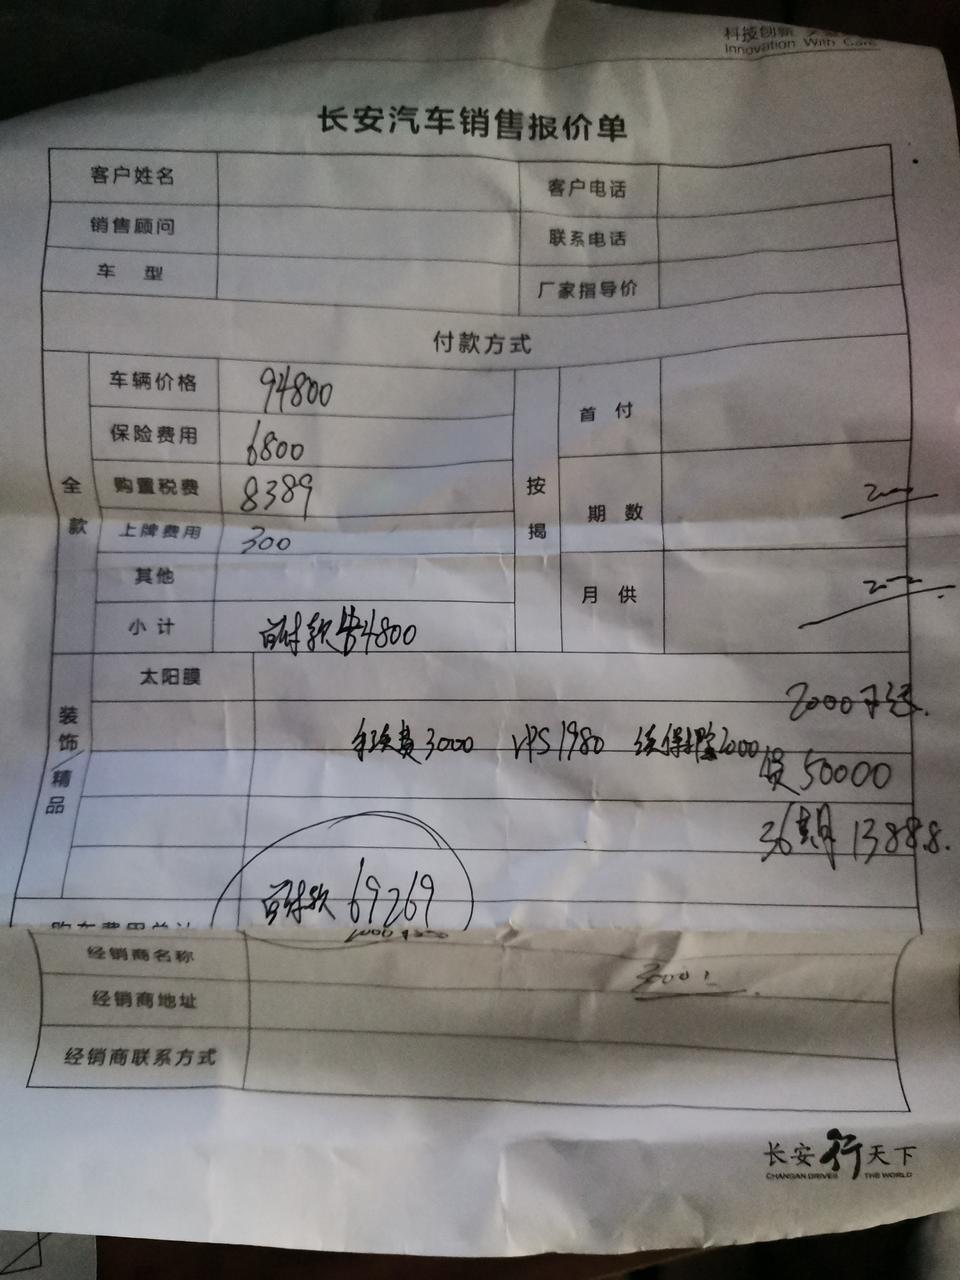 科技创新
Innovation With Care
长安汽车销售报价单
客户姓名 客户电话
销售顾问 联系电话
车 型 厂家指导价
付款方式
全款 车辆价格 94800 按揭 首 付
保险费用 6800
购置税费 8389 期 数
上牌费用 300
其他 月 供
小计 首付款 44800
装饰/精品 太阳膜
2000
3000 1980 续保押金2000
贷 50000
36期 1388.8.
首付款 69269
经销商名称
经销商地址
经销商联系方式
长安行天下
CHANGAN DRIVES THE WORLD